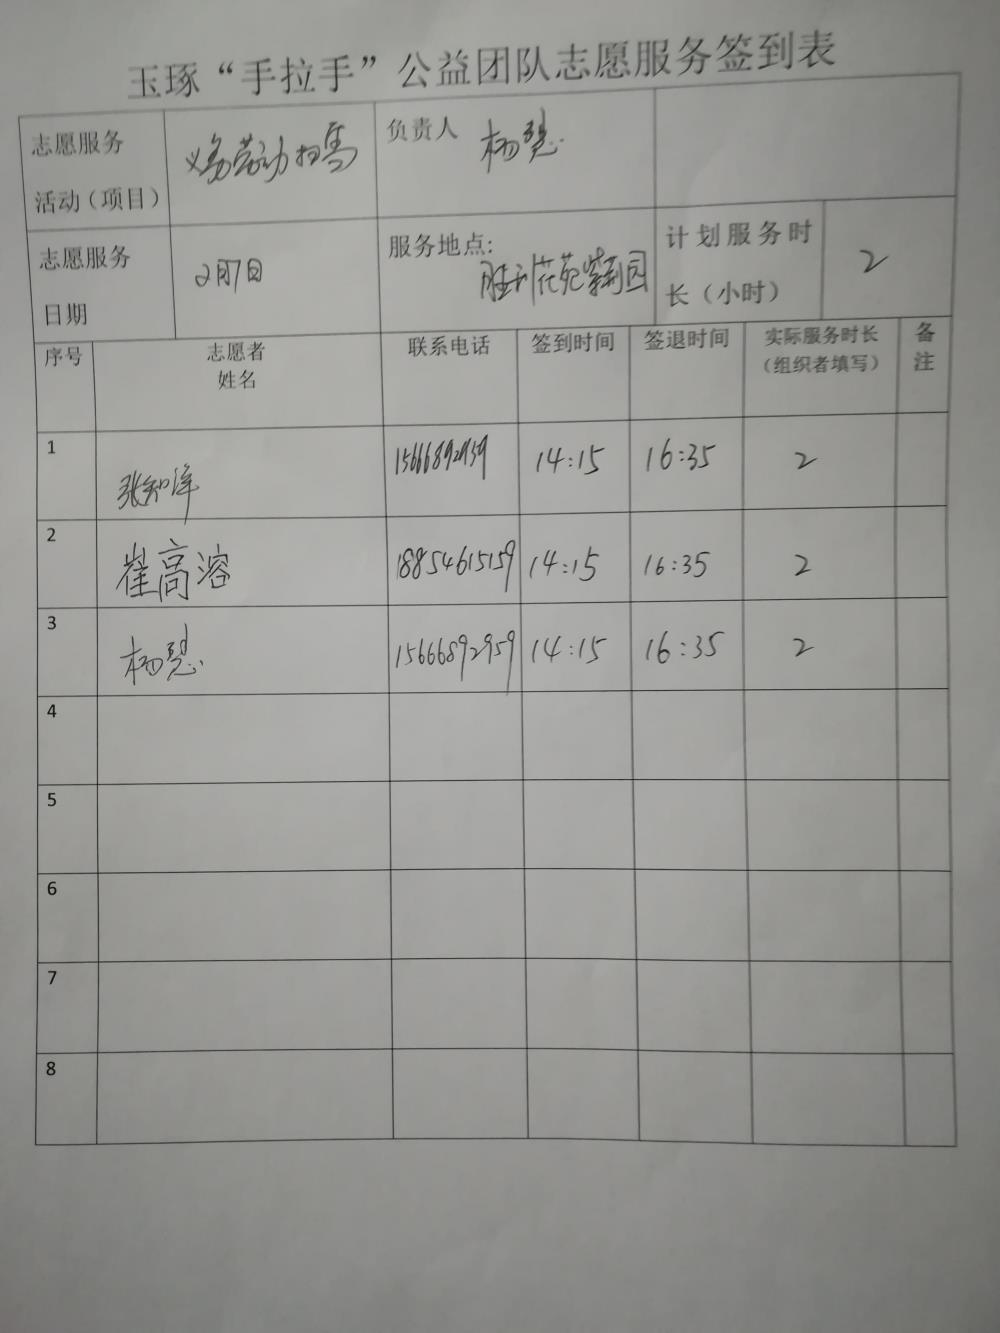 玉琢“手拉手”公益团队志愿服务签到表
志愿服务
活动（项目） 义务劳动扫雪 负责人 杨慧
志愿服务
日期 2月7日 服务地点: 胜利花苑紫荆园 计划服务时
长（小时） 2
序号 志愿者
姓名 联系电话 签到时间 签退时间 实际服务时长
（组织者填写） 备
注
1 张知 15666892959 14:15 16:35 2
2 崔高溶 18854615159 14:15 16:35 2
3 杨慧 15666892959 14:15 16:35 2
4
5
6
7
8